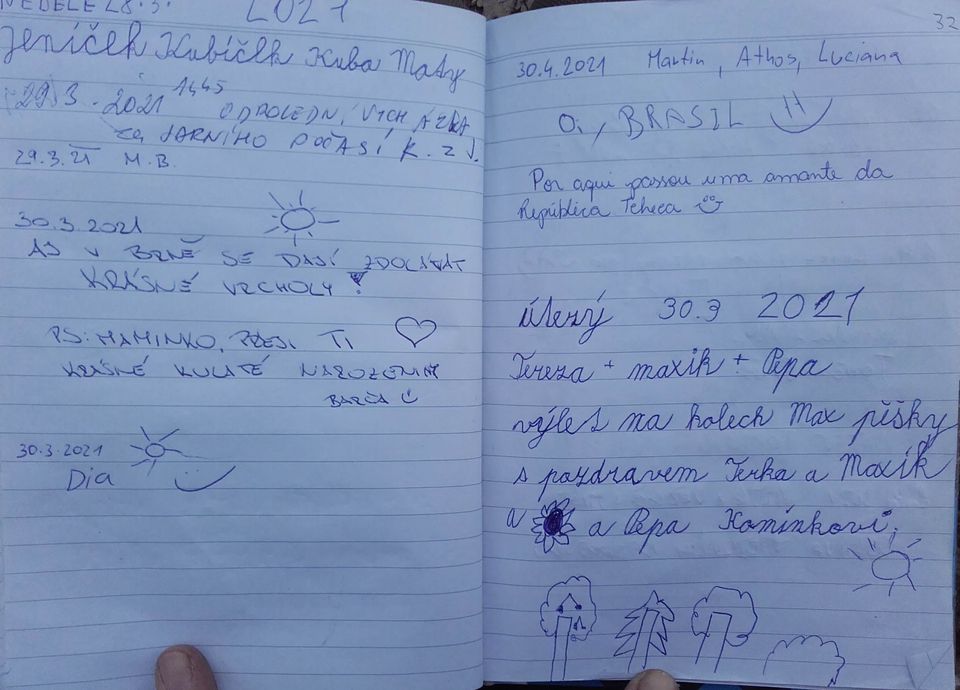 NEDĚLE 28.3. 2021
Jeníček Kubíček Kuba Maty
29.3.2021 14,45 ODPOLEDNÍ VYCHÁZKA
ZA JARNÍHO POČASÍ K. z J.
29.3.21 M.B.
30.3.2021
AJ V BRNĚ SE DAJÍ ZDOLÁVAT
KRÁSNÉ VRCHOLY!
PS: MAMINKO, PŘEJI TI
KRÁSNÉ KULATÉ NAROZENINY
BARČA
30.3.2021
Dia
32
30.4.2021 Martin, Athos, Luciana
Oi, BRASIL
Por aqui passou uma amante da
República Tcheca
úterý 30.3 2021
Tereza + maxík + Pepa
výlet na kolech Max pěšky
s pozdravem Terka a Maxík
a a Pepa Kamínkovi.